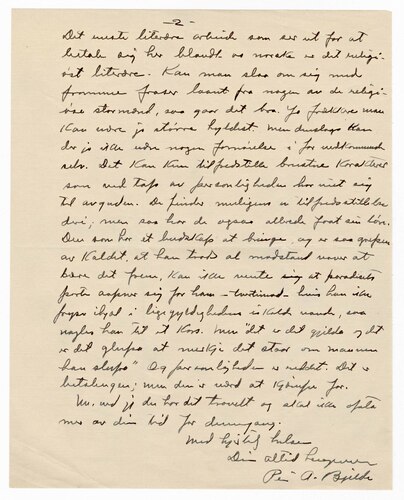 -2-
Det meste literære arbeid som ser ut for at
betale sig her blandt os norske er det religi-
øst literære. Kan man slaa om sig med
fromme fraser laant fra nogen av de religi-
øse stormænd, saa gaar det bra. Jo frækkere man
kan være jo större hyldest. Men deslags kan
der jo ikke være nogen fornöielse i for vedkommende
selv. Det kan kun tilfredstille brustne karakterer
som ved tap av personligheden har viet sig
til avguden. De finder muligens en tilfredsstillelse
deri; men saa har de ogsaa allerede faat sin lön.
Den som har et budskap at bringe, og er saa grepen
av kaldet, at han trods al modstand vaaver at
bære det frem, kan ikke vente sig at paradisets
porte aapner sig for ham – tvertimod – hvis han ikke
fryses ihjel i ligegyldighedens iskolde vande, saa
nagles han til et kors. Men "det er det gjilde og det
er det
Og personligheden er reddet. Det er
betalingen; men den er værd at kjæmpe for.
Nu, ved jeg du har det travelt og skal ikke opta
mer av din tid for dennegang.
Med hjertelig hilsen
Din altid
A.